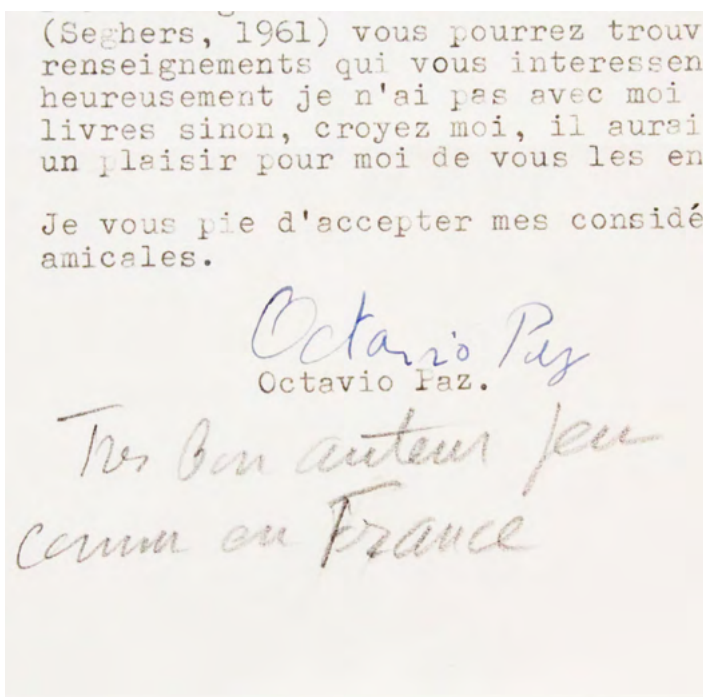 (Seghers, 1961) vous pourrez trouv
renseignements qui vous interessen
heureusement je n'ai pas avec moi
livres sinon, croyez moi, il aurai
un plaisir pour moi de vous les en
Je vous pie d'accepter mes considé
amicales.
Octavio Paz
Octavio Paz.
Tres bon auteur peu
connu en France